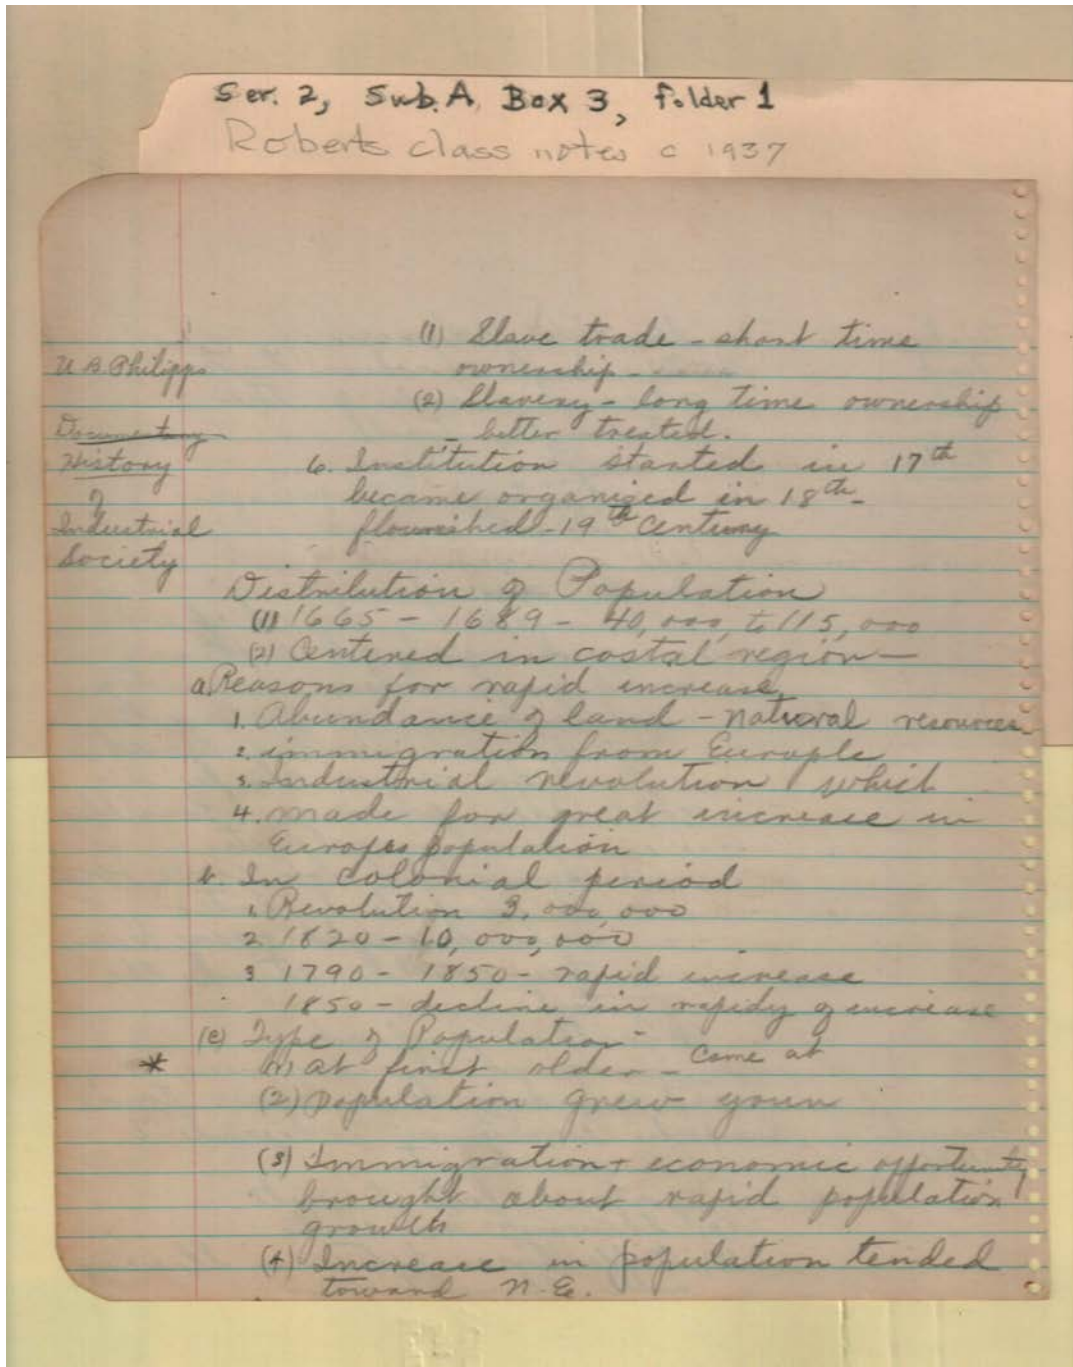 Ser. 2, Sub. A, Box 3, Folder 1
Roberts class notes c 1937
(1) Slave trade - short time
ownership -
(2) Slavery - long time ownership
- better treated.
U. B. Philipps
Documentary
History
of
Industrial
Society
6. Institution started in 17th
became organized in 18th -
flourished - 19th Century
Distribution of Population
(1) 1665 - 1689 - 40,000 to 115,000
(2) Centered in costal region -
a. Reasons for rapid increase.
1. Abundance of land - natural resources
2. immigration from Europe
3. Industrial revolution which
4. made for great increase in
Europes population
b. In colonial period
1. Revolution 3,000,000
2. 1820 - 10,000,000
3 1790 - 1850 - rapid increase
1850 - decline in rapidy of increase
(c) Type of Population -
* (1) At first older - Came at
(2) Population grew youn
(3) Immigration + economic opportunity
brought about rapid population
growth
(4) Increase in population tended
toward N.E.